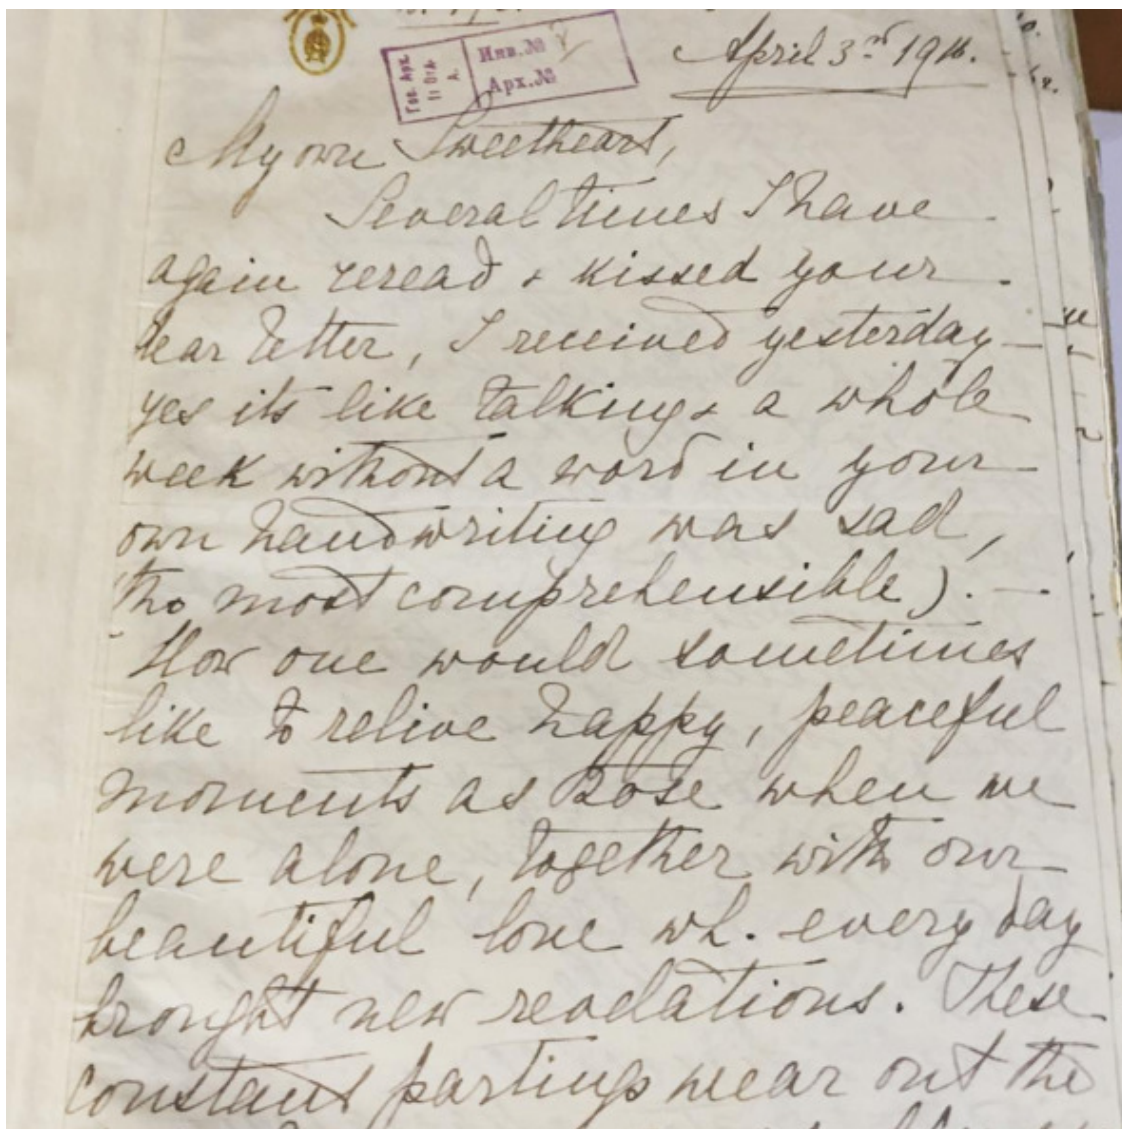 April 3rd 1916.
Гос. Арх.
А.
Инв.№
Арх.№
My own Sweetheart,
Several times I have
again reread & kissed your
dear letter, I received yesterday
yes its like talking & a whole
week without a word in your
own handwriting was sad,
tho most comprehensible). —
How one would sometimes
like to relive happy, peaceful
moments as those when we
were alone, together with our
beautiful love wh. every day
brought new revelations. These
constant partings wear out the